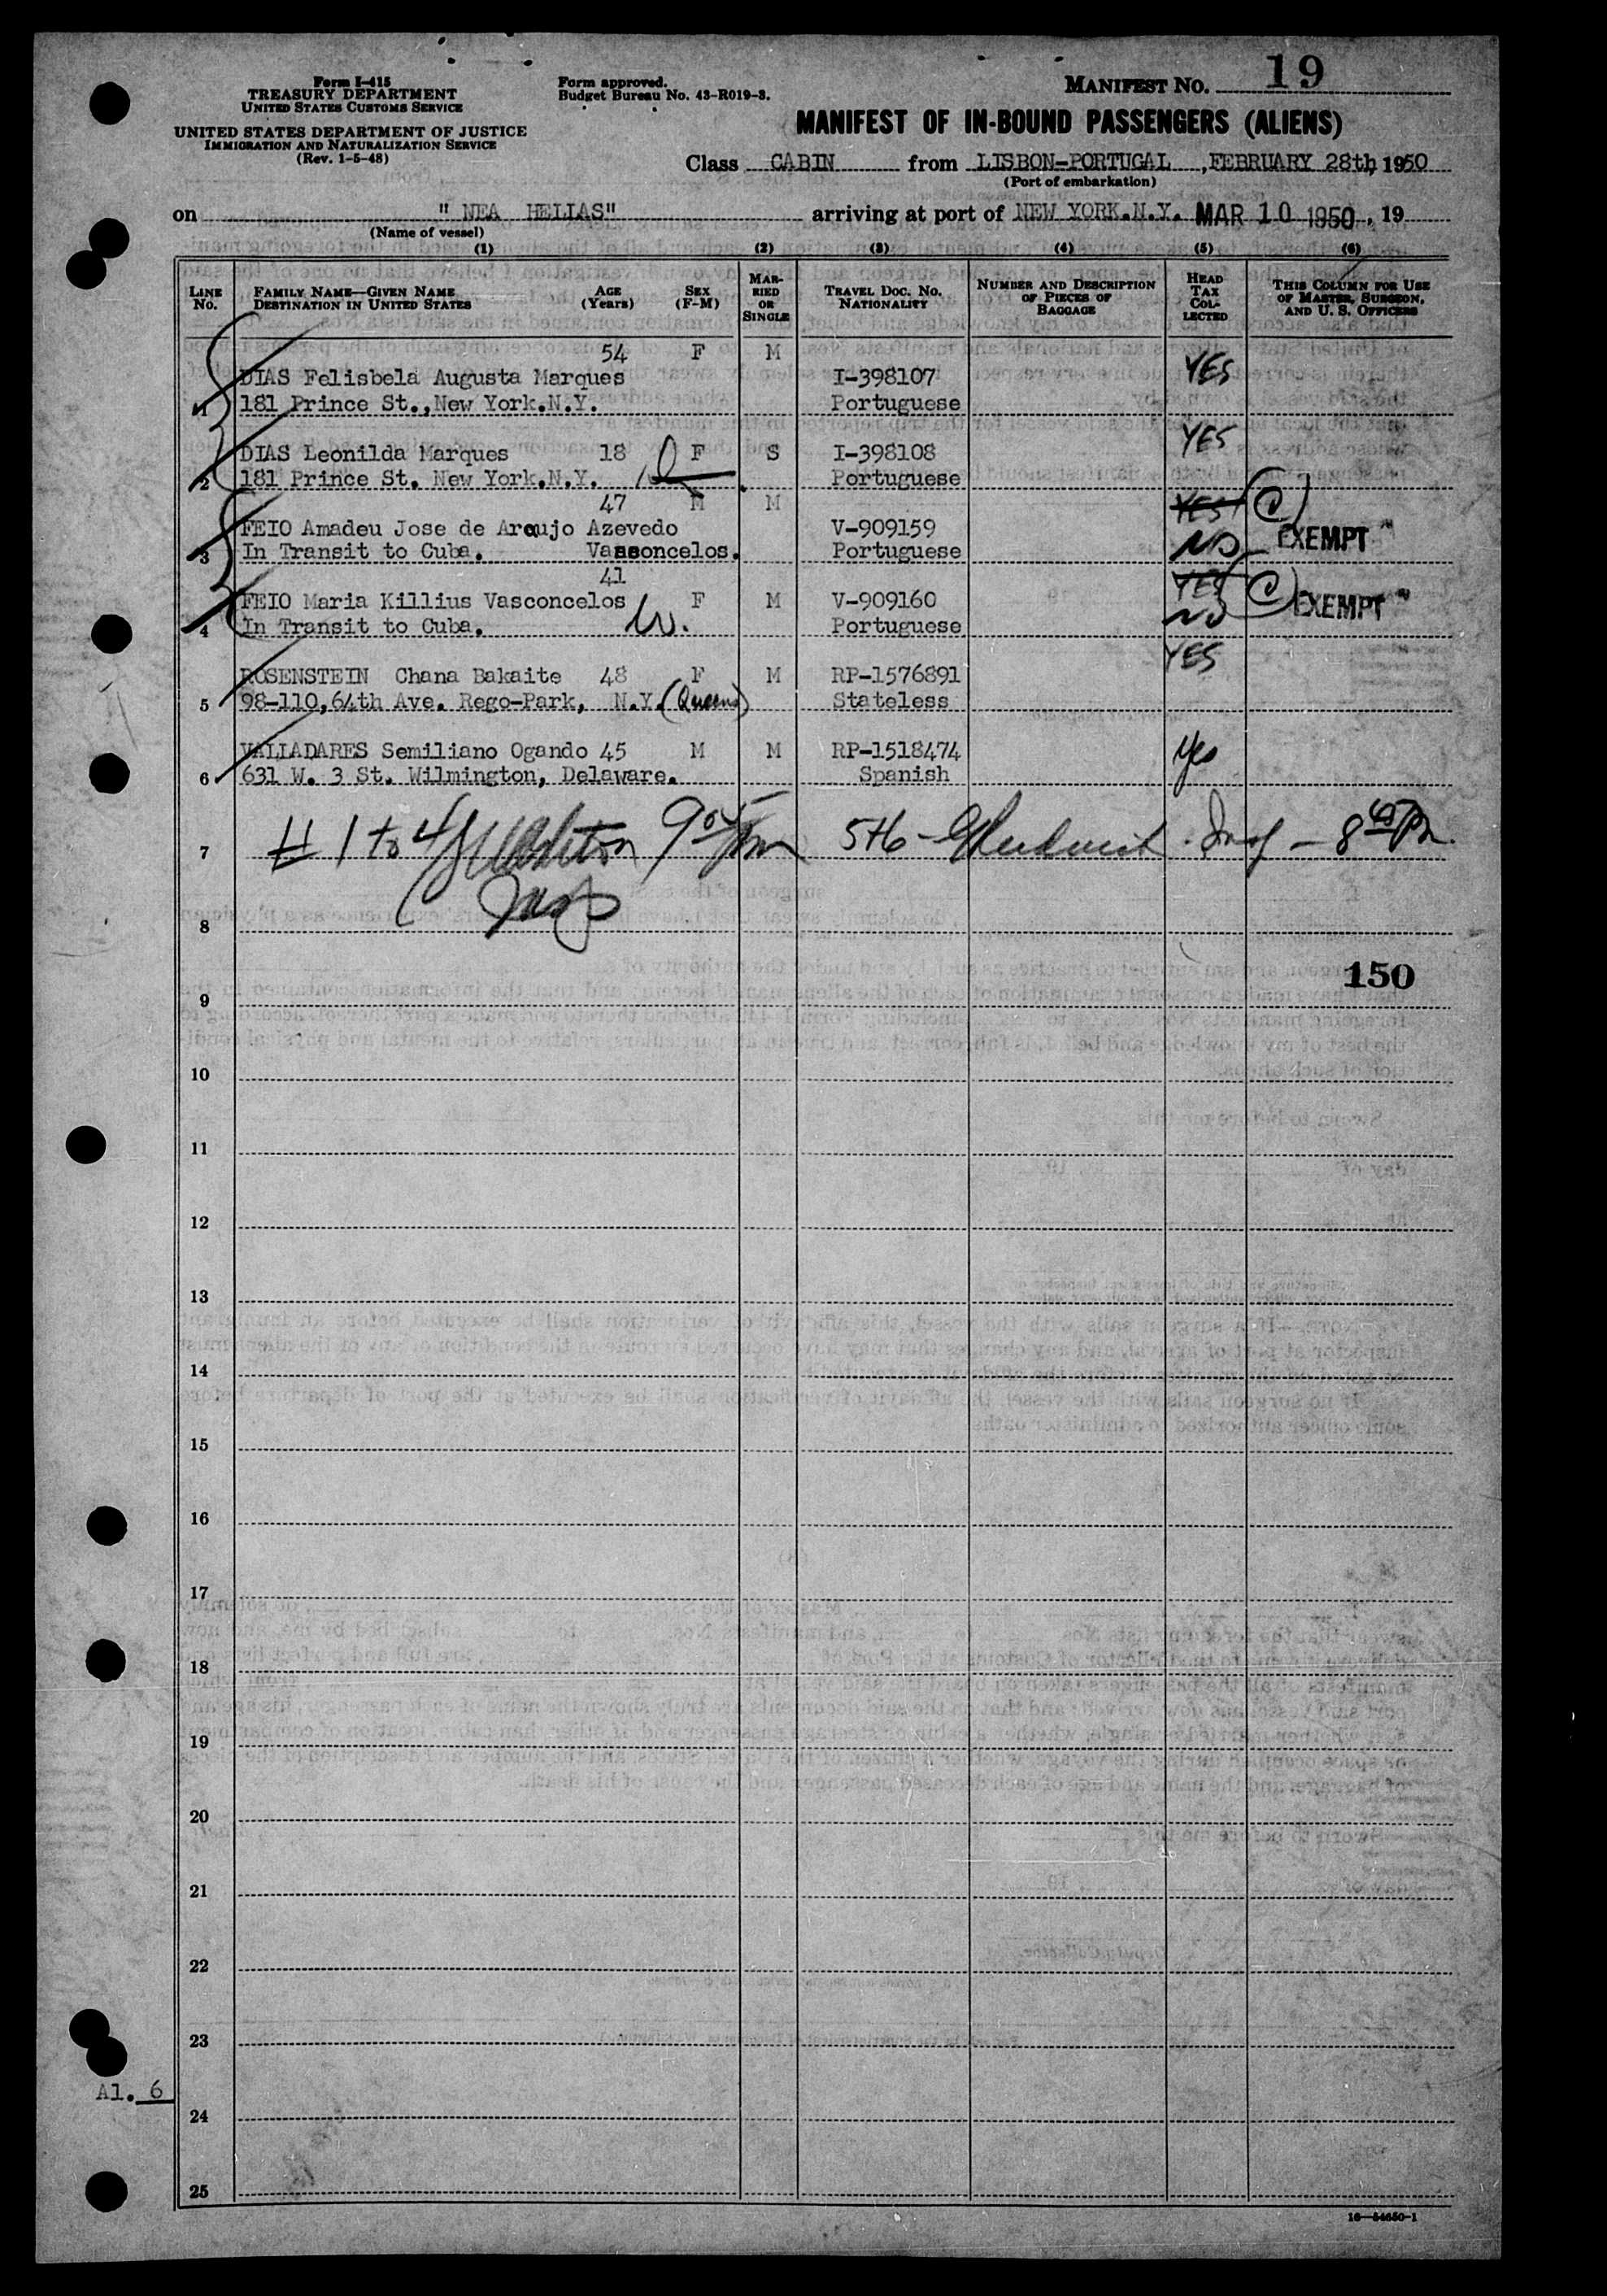 Form I-415
TREASURY DEPARTMENT
UNITED STATES CUSTOMS SERVICE
UNITED STATES DEPARTMENT OF JUSTICE
IMMIGRATION AND NATURALIZATION SERVICE
(Rev. 1-5-48)
Form approved.
Budget Bureau No. 43-R019-3.
MANIFEST NO. 19
MANIFEST OF IN-BOUND PASSENGERS (ALIENS)
Class CABIN from LISBON-PORTUGAL, FEBRUARY 28th, 1950
(Port of embarkation)
on " NEA HELIAS" arriving at port of NEW YORK.N.Y. MAR 10 1950, 19
(Name of vessel)
(1) (2) (3) (4) (5) (6)
LINE No. FAMILY NAME—GIVEN NAME DESTINATION IN UNITED STATES AGE (Years) SEX (F-M) MARRIED OR SINGLE TRAVEL DOC. NO. NATIONALITY NUMBER AND DESCRIPTION OF PIECES OF BAGGAGE HEAD TAX COLLECTED THIS COLUMN FOR USE OF MASTER, SURGEON, AND U. S. OFFICERS
54 F M YES
DIAS Felisbela Augusta Marques I-398107
1 181 Prince St.,New York.N.Y. Portuguese
DIAS Leonilda Marques 18 F S I-398108 YES
2 181 Prince St. New York.N.Y. Portuguese
47 M M YES C
FEIO Amadeu Jose de Araujo Azevedo V-909159
3 In Transit to Cuba. Vasconcelos. Portuguese NO EXEMPT
41 YES C
FEIO Maria Killius Vasconcelos F M V-909160 EXEMPT
4 In Transit to Cuba. Portuguese NO
ROSENSTEIN Chana Bakaite 48 F M RP-1576891 YES
5 98-110,64th Ave. Rego-Park, N.Y. (Queens) Stateless
VALLADARES Semiliano Ogando 45 M M RP-1518474 yes
6 631 W. 3 St. Wilmington, Delaware. Spanish
7 # 1 to 4 5+6 - Insp - 8
Insp
8
150
9
10
11
12
13
14
15
16
17
18
19
20
21
22
23
Al. 6
24
25
16—54650-1